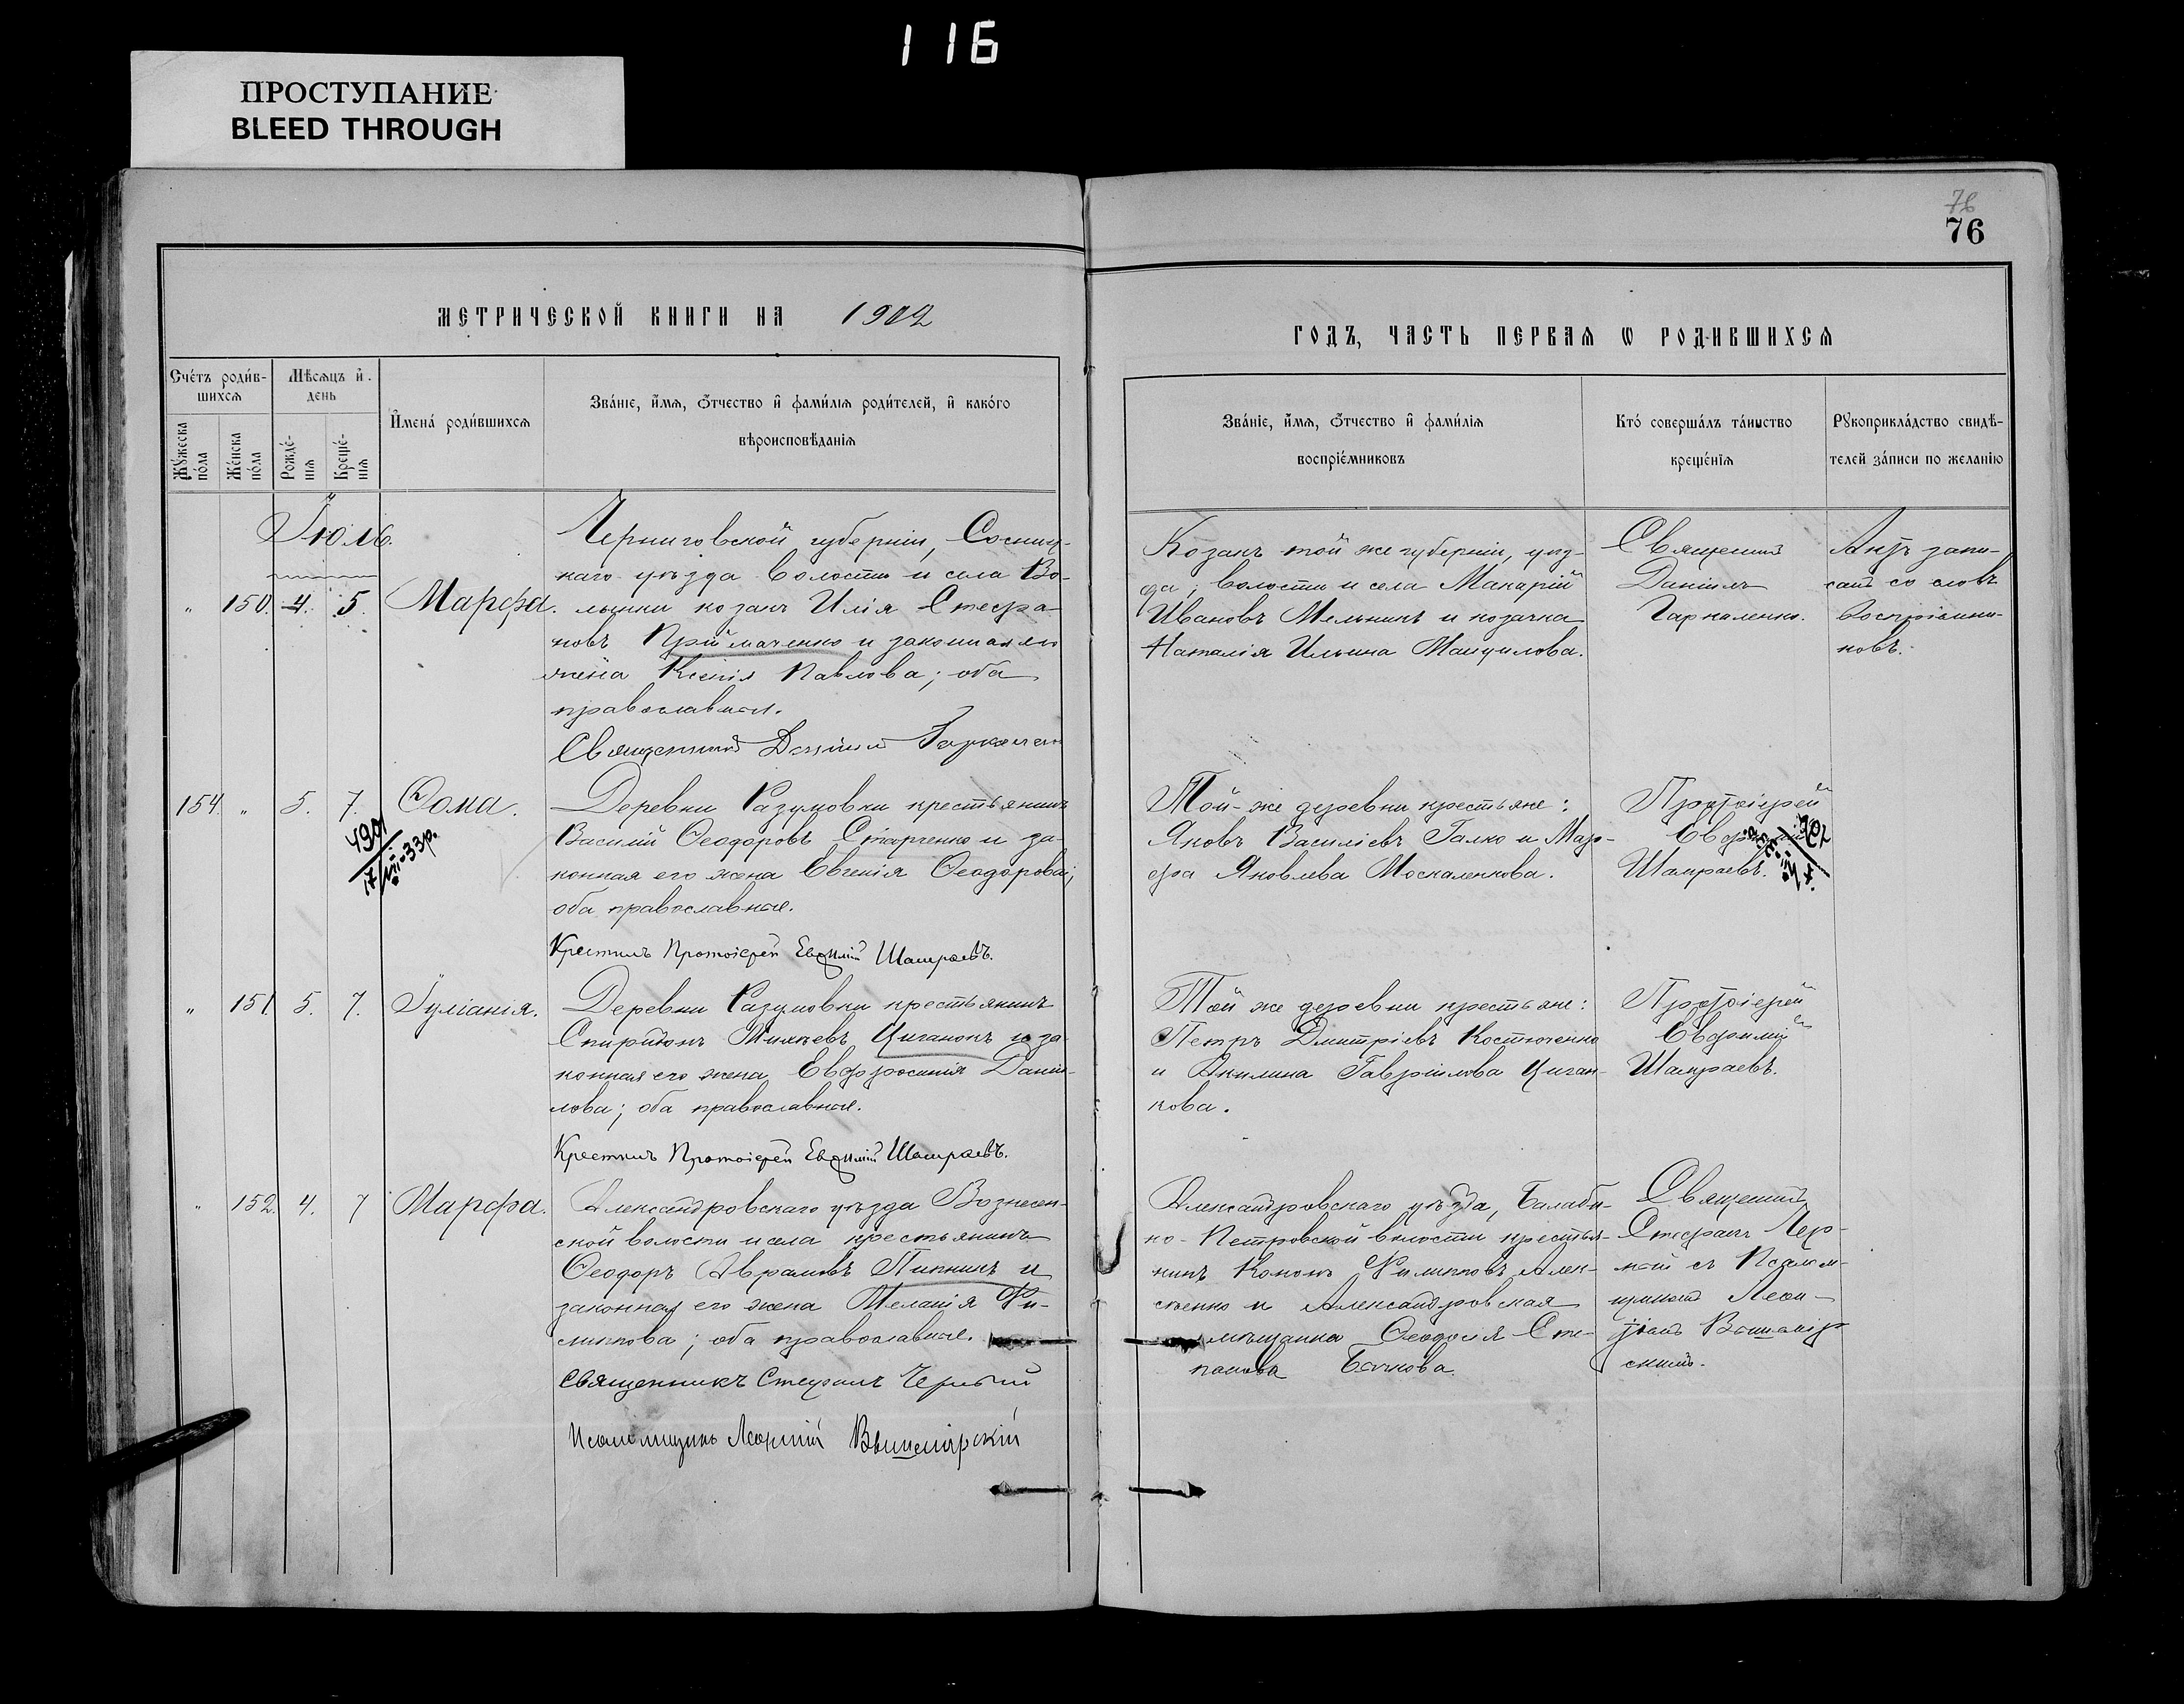 116
ПРОСТУПАНИЕ
BLEED THROUGH
76
76
МЕТРИЧЕСКОЙ КНИГИ НА 1902
ГОДЪ, ЧАСТЬ ПЕРВАЯ Ѡ РОДИВШИХСЯ
Сче́тъ роди́в-
шихсѧ
Мѣсѧцъ и҆
день
Мꙋ́жеска
по́ла
Же́нска
по́ла
Рожде́-
нїѧ
Креще́-
нїѧ
И҆мена̀ роди́вшихсѧ
Зва́нїе, и҆́мѧ, ѻ҆́тчество и҆ фами́лїѧ роди́телей, и҆ како́гѡ
вѣроисповѣ́данїѧ
Зва́нїе, и҆́мѧ, ѻ҆́тчество и҆ фами́лїѧ
воспрїе́мниковъ
Кто̀ соверша́лъ та́инство
креще́нїѧ
Рꙋкоприкла́дство свидѣ́-
телей за́писи по жела́нїю
Іюль.
" 150. 4. 5. Марѳа.
Черниговской губерніи, Сосниц-
каго уѣзда волости и села Во-
лынки козакъ Илія Стефа-
новъ Пріймаченко и законная его
жена Ксенія Павлова; оба
православные.
Священникъ Даніилъ Гаркаленко
Козакъ той же губерніи, уѣз-
да, волости и села Макарій
Ивановъ Мельникъ и козачка
Наталія Ильина Мануилова.
Священникъ
Даніилъ
Гаркаленко.
Актъ запи-
санъ со словъ
воспріемни-
ковъ.
154. " 5. 7. Ѳома.
Деревни Разумовки крестьянинъ
Василій Ѳеодоровъ Старченко и за-
конная его жена Евгенія Ѳеодорова;
оба православные.
Крестилъ Протоіерей Евѳимій Шамраевъ.
Той-же деревни крестьяне:
Яковъ Василіевъ Галко и Мар-
ѳа Яковлева Москаленкова.
Протоіерей
Евѳимій
Шамраевъ.
" 151. 5. 7. Іуліанія.
Деревни Разумовки крестьянинъ
Спиридонъ Михеевъ Циганокъ и за-
конная его жена Евфросинія Даніи-
лова; оба православные.
Крестилъ Протоіерей Евѳимій Шамраевъ.
Той же деревни крестьяне:
Петръ Дмитріевъ Костюченко
и Акилина Гавріилова Циган-
кова.
Протоіерей
Евѳимій
Шамраевъ.
" 152. 4. 7 Марѳа.
Александровскаго уѣзда Вознесен-
ской волости и села крестьянинъ
Ѳеодоръ Аврамовъ Пипникъ и
законная его жена Меланія Фи-
липпова; оба православные.
Священникъ Стефанъ Черный
Псаломщикъ Леонтій Вышемірскій
Александровскаго уѣзда, Балаби-
но-Петровской волости крестья-
нинъ Кононъ Филипповъ Алек-
сѣенко и Александровская
мѣщанка Ѳеодосія Сте-
панова Бачкова.
Священникъ
Стефанъ Чер-
ный съ Псалом-
щикомъ Леон-
тіемъ Вышемір-
скимъ.